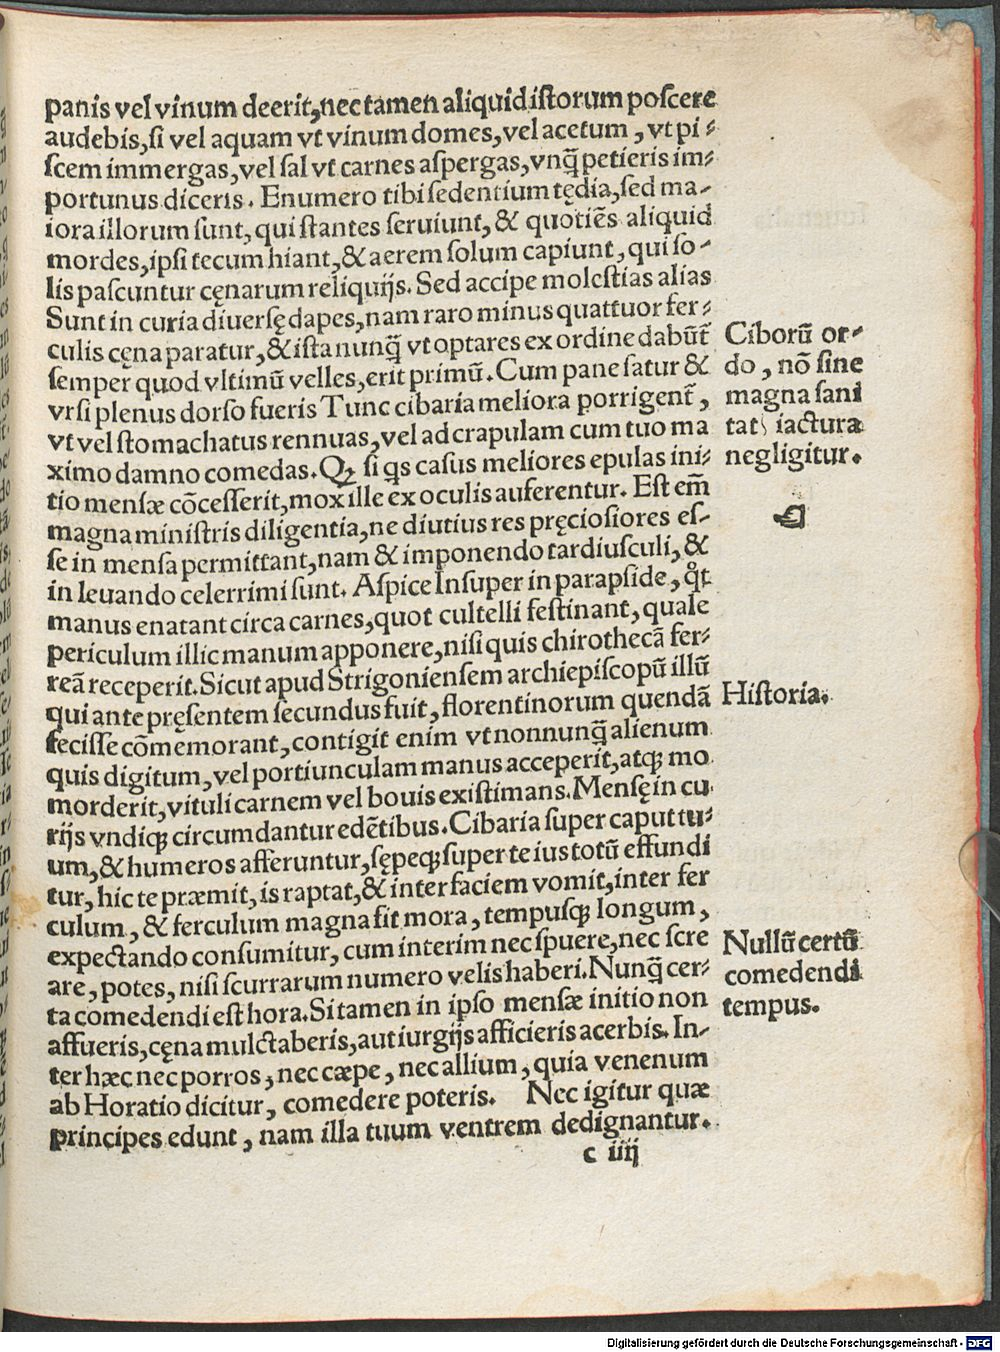 panis vel vinum deerit, nec tamen aliquid istorum poscere
audebis, si vel aquam vt vinum domes, vel acetum, vt pi⸗
scem immergas, vel sal vt carnes aspergas, vnq̃ petieris im⸗
portunus diceris. Enumero tibi sedentium tędia, sed ma⸗
iora illorum sunt, qui stantes seruiunt, & quotiẽs aliquid
mordes, ipsi tecum hiant, & aerem solum capiunt, qui so⸗
lis pascuntur cęnarum reliquijs. Sed accipe molestias alias
Sunt in curia diuersę dapes, nam raro minus quattuor fer⸗
culis cęna paratur, & ista nunq̃ vt optares ex ordine dabũt̃
semper quod vltimũ velles, erit primũ. Cum pane satur &
vrsi plenus dorso fueris Tunc cibaria meliora porrigent̃,
vt vel stomachatus rennuas, vel ad crapulam cum tuo ma
ximo damno comedas. Qꝫ si qs casus meliores epulas ini⸗
tio mensæ cõcesserit, mox ille ex oculis auferentur. Est em̃
magna ministris diligentia, ne diutius res pręciosiores es⸗
se in mensa permittant, nam & imponendo tardiusculi, &
in leuando celerrimi sunt. Aspice Insuper in parapside, qͦt
manus enatant circa carnes, quot cultelli festinant, quale
periculum illic manum apponere, nisi quis chirothecã fer⸗
reã receperit. Sicut apud Strigoniensem archiepiscopũ illũ
qui ante pręsentem secundus fuit, florentinorum quendã
fecisse cõmemorant, contigit enim vt nonnunq̃ alienum
quis digitum, vel portiunculam manus acceperit, atqꝫ mo
morderit, vituli carnem vel bouis existimans. Mensę in cu
rijs vndiqꝫ circumdantur edẽtibus. Cibaria super caput tu⸗
um, & humeros afferuntur, sępeqꝫ super te ius totũ effundi
tur, hic te præmit, is raptat, & inter faciem vomit, inter fer
culum, & ferculum magna fit mora, tempusqꝫ longum,
expectando consumitur, cum interim nec spuere, nec scre
are, potes, nisi scurrarum numero velis haberi. Nunq̃ cer⸗
ta comedendi est hora. Si tamen in ipso mensæ initio non
affueris, cęna mulctaberis, aut iurgijs afficieris acerbis. In⸗
ter hæc nec porros, nec cæpe, nec allium, quia venenum
ab Horatio dicitur, comedere poteris. Nec igitur quæ
principes edunt, nam illa tuum ventrem dedignantur.
c iiij
Ciborũ or⸗
do, nõ sine
magna sani
tatis iactura
negligitur.
Historia.
Nullũ certũ
comedendi
tempus.
Digitalisierung gefördert durch die Deutsche Forschungsgemeinschaft - DFG